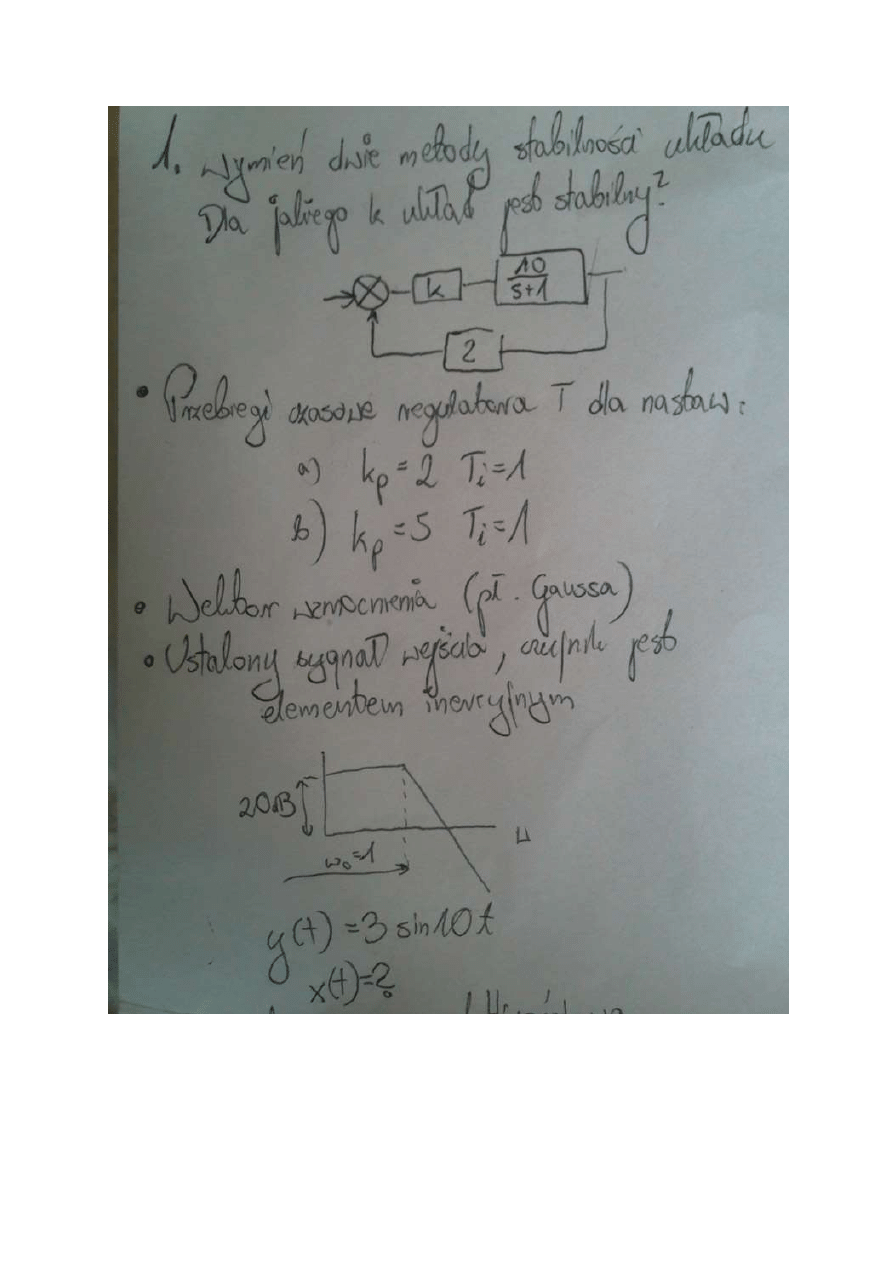 1. Wymień dwie metody stabilności układu
Dla jakiego k układ jest stabilny?
k
10
s+1
2
• Przebiegi czasowe regulatora I dla nastaw:
a) kp = 2 Ti = 1
b) kp = 5 Ti = 1
• Wektor wzmocnienia (pł. Gaussa)
• Ustalony sygnał wejścia, czujnik jest
elementem inercyjnym
20dB
ω0=1
y(t) = 3 sin10t
x(t)=?